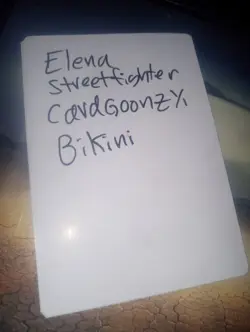 Elena
Streetfighter
CardGoonzYi
Bikini